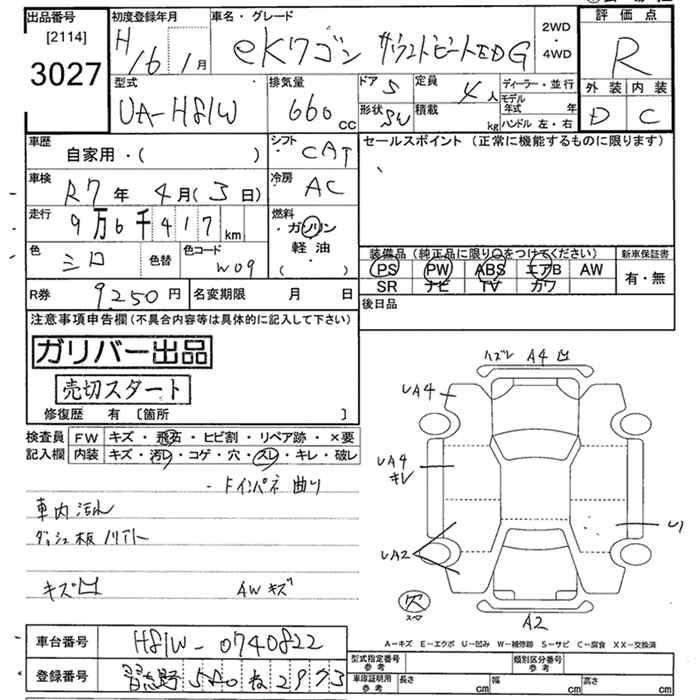 出品番号 [2114] 3027
初度登録年月 H16年1月
車名・グレード ekワゴン サウンドビートED G
2WD・4WD
評価点 R
外装 D 内装 C
型式 UA-H81W
排気量 660cc
ドア 5 定員 4人
形状 SW 積載 kg
ディーラー・並行
モデル年式 年
ハンドル 左・右
車歴 自家用・( )
シフト CAT
セールスポイント (正常に機能するものに限ります)
車検 R7年4月(3日)
冷房 AC
走行 9万6千417km
燃料 ガソリン 軽油 ( )
色 シロ 色替 色コード W09
装備品(純正品に限り○をつけてください) 新車保証書
PS PW ABS エアB AW 有・無
SR ナビ TV カワ
R券 9250円 名変期限 月 日
後日品
注意事項申告欄(不具合内容等は具体的に記入して下さい)
ガリバー出品
売切スタート
修復歴 有 [箇所 ]
検査員 FW キズ・飛石・ヒビ割・リペア跡・×要
記入欄 内装 キズ・汚レ・コゲ・穴・スレ・キレ・破レ
・ドインパネ曲り
車内汚れ
ダッシュ板ノリアト
キズ凹 AWキズ
ハズレ A4 凹
UA4
UA4
キレ
UA2
U1
欠
スペア
A2
A-キズ E-エクボ U-凹み W-補修跡 S-サビ C-腐食 XX-交換済
車台番号 H81W-0740822
登録番号 習志野 580 ね 2973
型式指定番号 参考 類別区分番号 参考
車庫証明用 参考 長さ cm 幅 cm 高さ cm